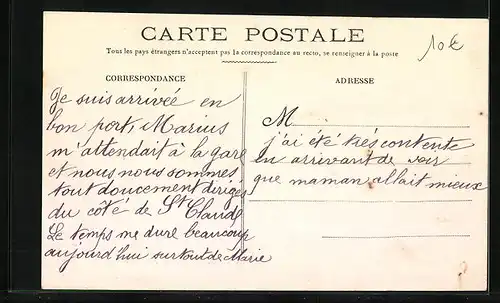 CARTE POSTALE
Tous les pays étrangers n'acceptent pas la correspondance au recto, se renseigner à la poste
10€
CORRESPONDANCE
ADRESSE
Je suis arrivée en
bon port, Marius
m'attendait à la gare
et nous nous sommes
tout doucement dirigés
du côté de St Claude
Le temps me dure beaucoup
aujourd'hui surtout de Marie
M
j'ai été très contente
en arrivant de voir
que maman allait mieux